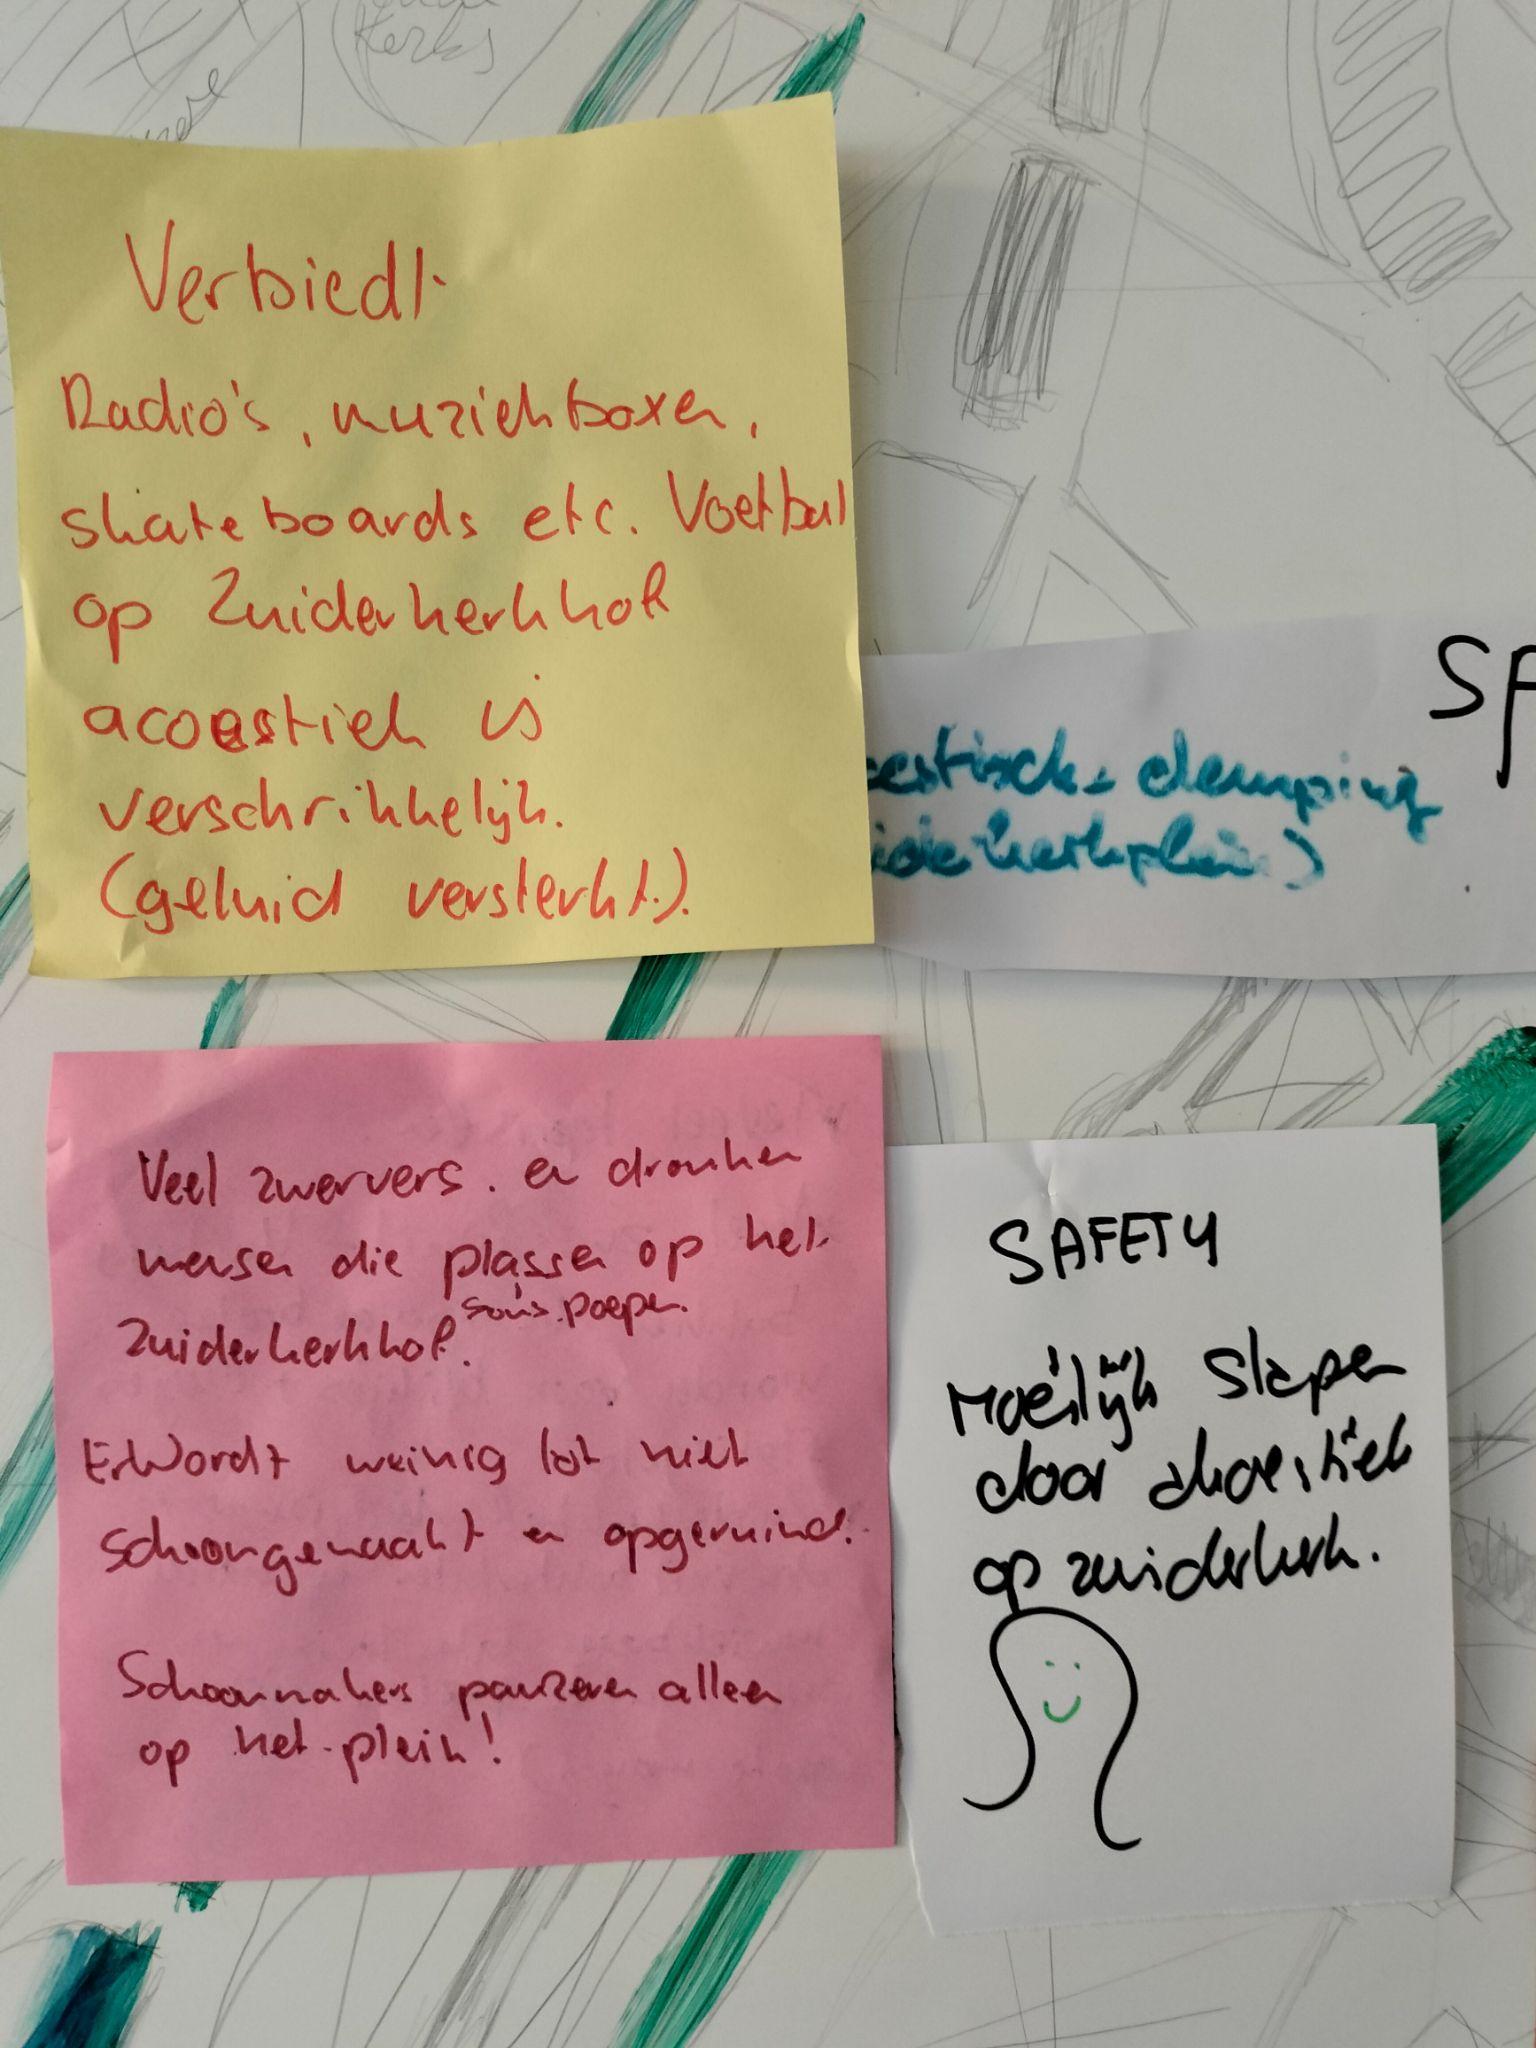 Kerks
Verbiedt
Radio's, muziekboxen,
skateboards etc. Voetbal
op Zuiderkerkhof
acoestiek is
verschrikkelijk.
(geluid versterkt.).
SA
oestisch demping
iderkerkplein)
Veel zwervers. en dronken
mensen die plassen op het
Zuiderkerkhof. soms poepen.
Er Wordt weinig tot niet
schoongemaakt en opgeruimd.
Schoonmakers pauzeren alleen
op het plein!
SAFETY
Moeilijk slapen
door akoestiek
op zuiderkerk.